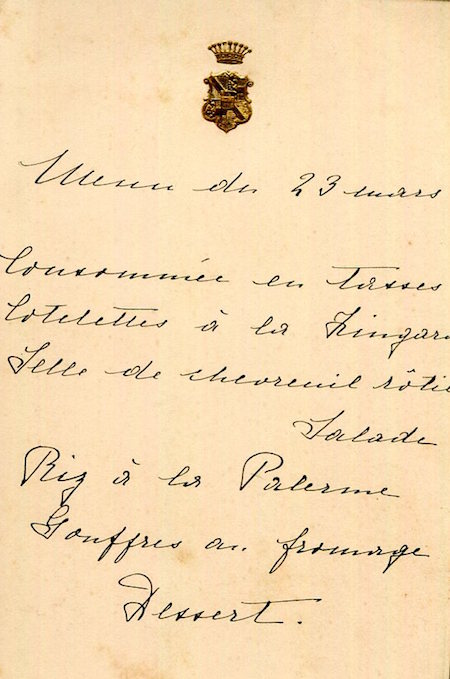 Menu du 23 mars
Consommée en tasses
Cotelettes à la Zingara
Selle de chevreuil rôtie
Salade
Riz à la Palerme
Gouffres au fromage
Dessert.